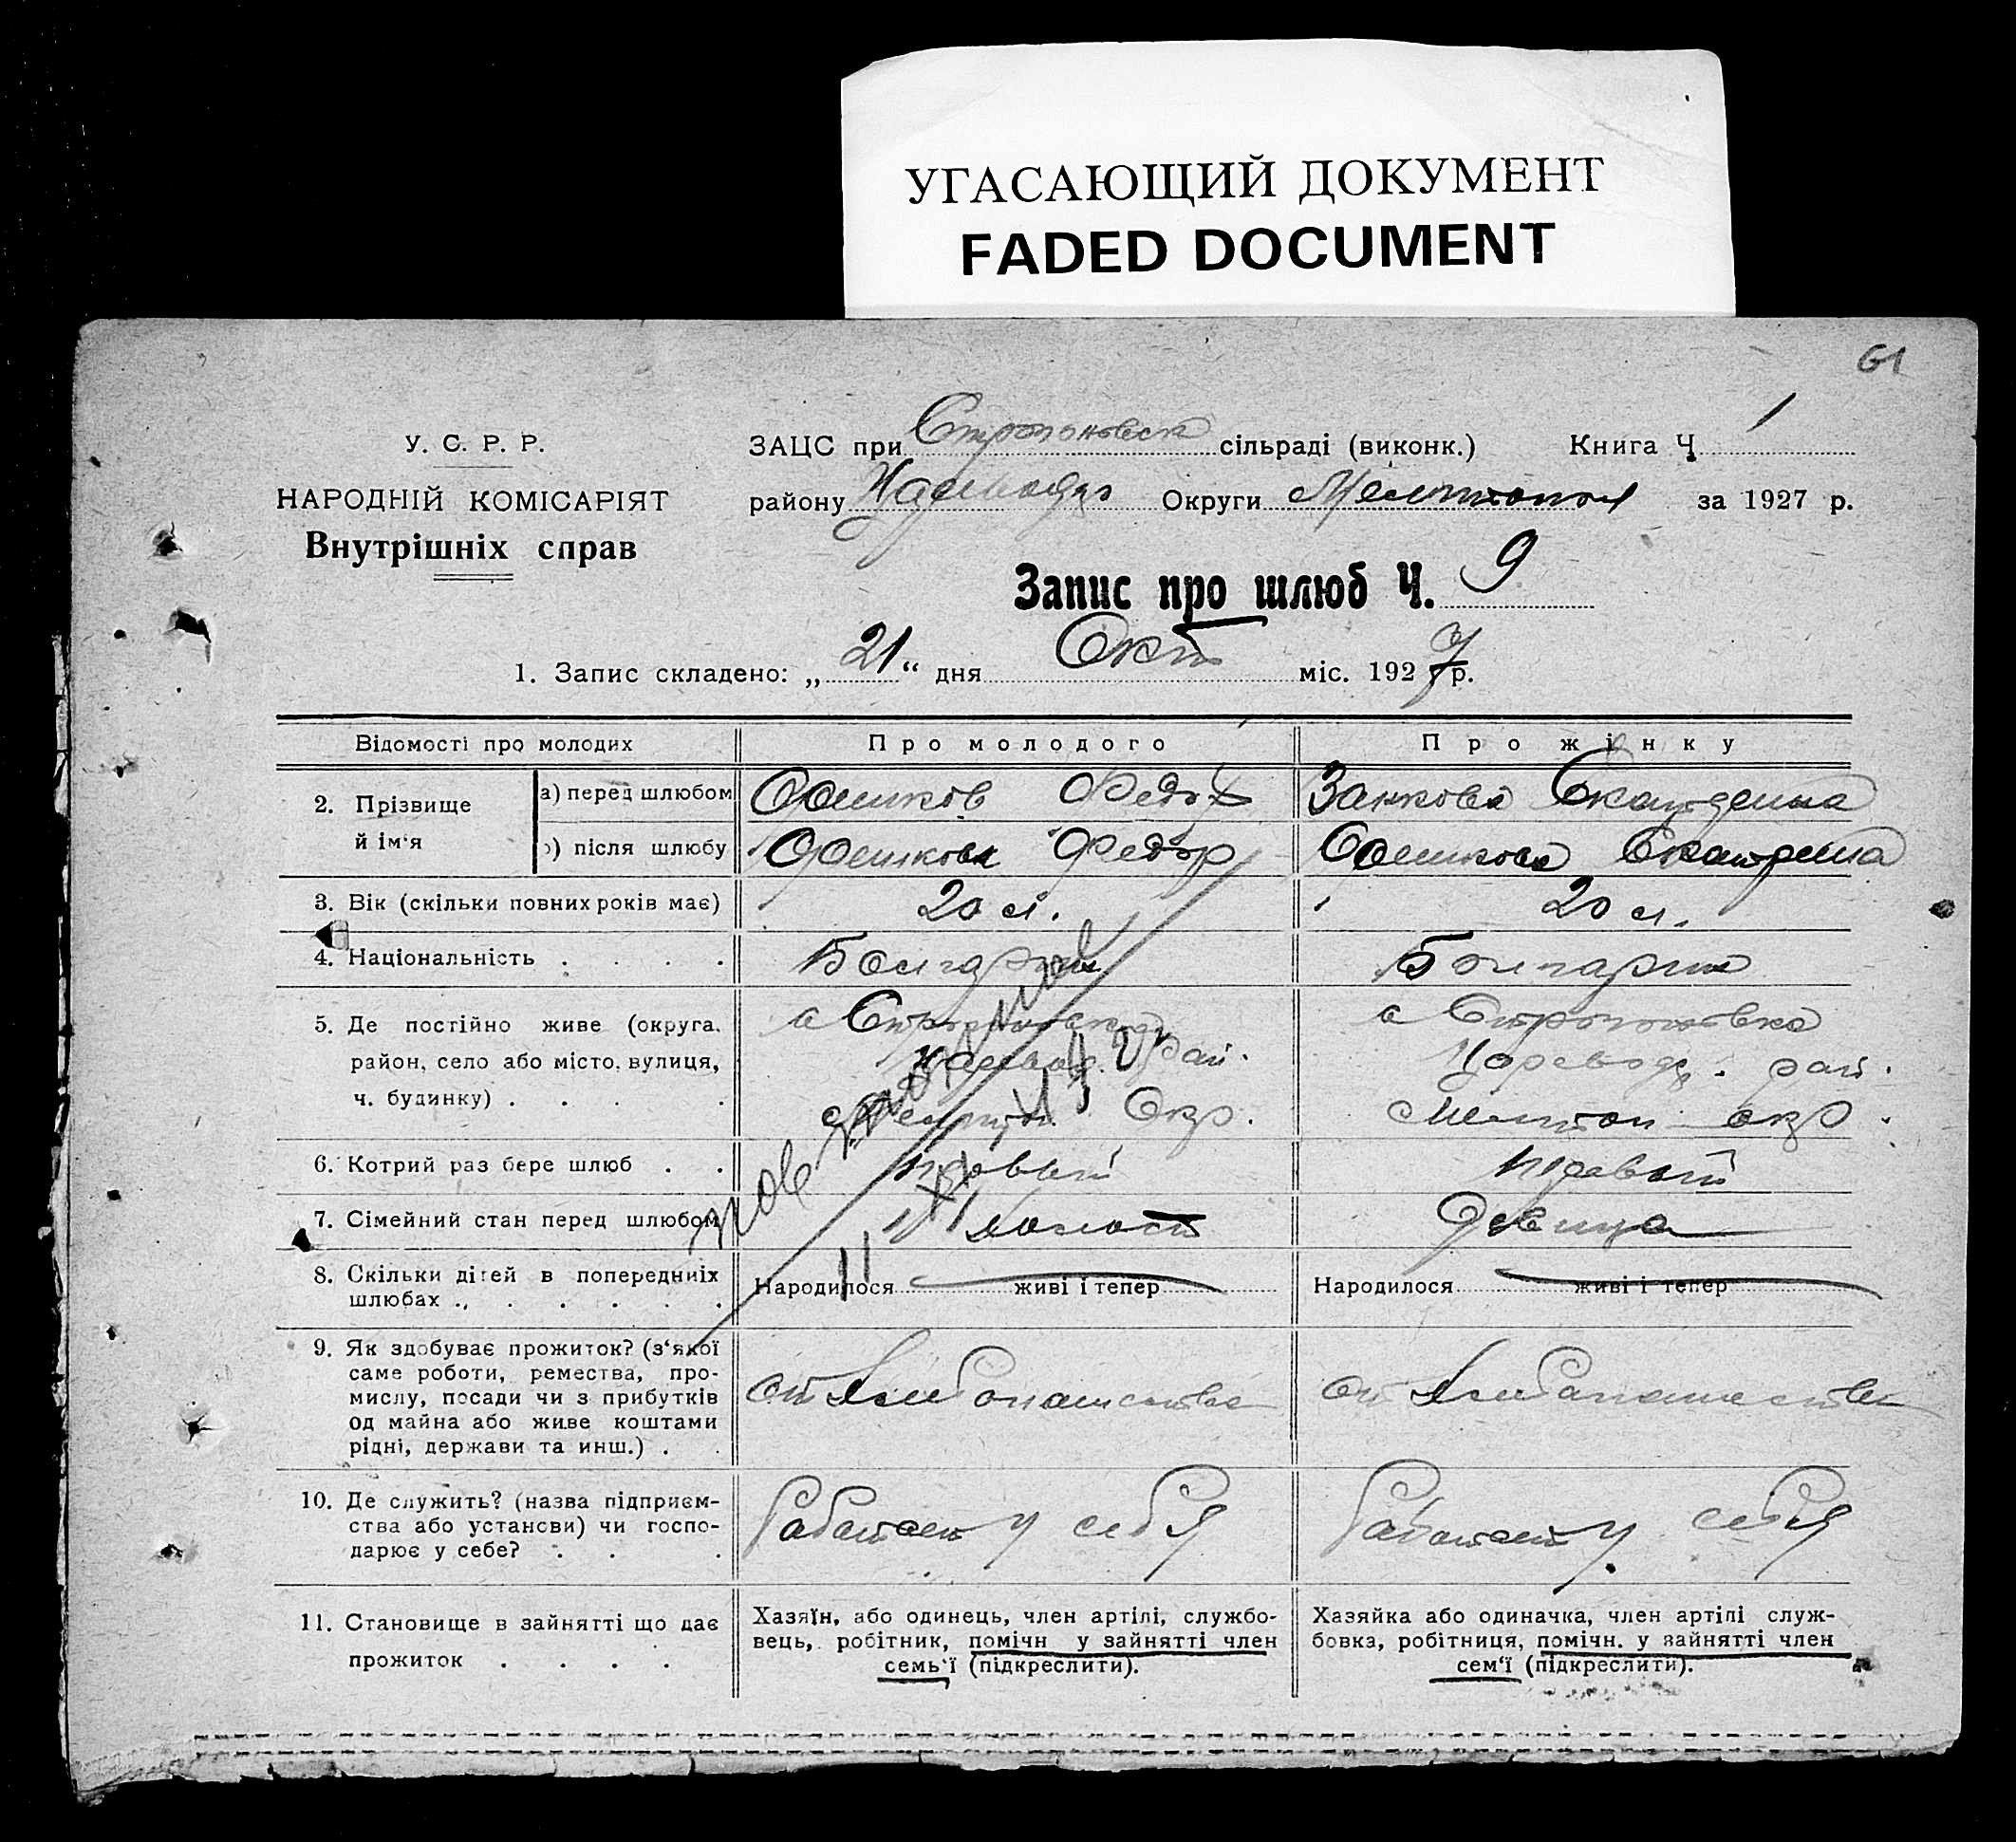 УГАСАЮЩИЙ ДОКУМЕНТ
FADED DOCUMENT
61
У. С. Р. Р.
НАРОДНІЙ КОМІСАРІЯТ
Внутрішніх справ
ЗАЦС при сільраді (виконк.) Книга Ч 1
району Округи Мелитопол за 1927 р.
Запис про шлюб Ч. 9
1. Запис складено: „21“ дня Окт міс. 1927 р.
Відомості про молодих Про молодого Про жінку
2. Прізвище й ім'я
а) перед шлюбом Федор Занкова Екатерина
б) після шлюбу Федор Екатерина
3. Вік (скільки повних років має) 20 л. 20 л.
4. Національність . . . . Болгарин Болгарка
5. Де постійно живе (округа,
район, село або місто, вулиця,
ч. будинку) . . . . Мелитоп. Окр. Мелитоп окр.
6. Котрий раз бере шлюб . . первый первый
7. Сімейний стан перед шлюбом холост Девица
8. Скільки дітей в попередніх
шлюбах . . . . . . Народилося живі і тепер Народилося живі і тепер
9. Як здобуває прожиток? (з'якої
саме роботи, ремества, про-
мислу, посади чи з прибутків
од майна або живе коштами
рідні, держави та инш.) . .
от хлебопашества от хлебопашества
10. Де служить? (назва підприєм-
ства або установи) чи госпо-
дарює у себе? . . .
Работает у себя Работает у себя
11. Становище в зайнятті що дає
прожиток . . . .
Хазяїн, або одинець, член артілі, службо-
вець, робітник, помічн у зайнятті член
семь'ї (підкреслити).
Хазяйка або одиначка, член артілі служ-
бовка, робітниця, помічн. у зайнятті член
сем'ї (підкреслити).